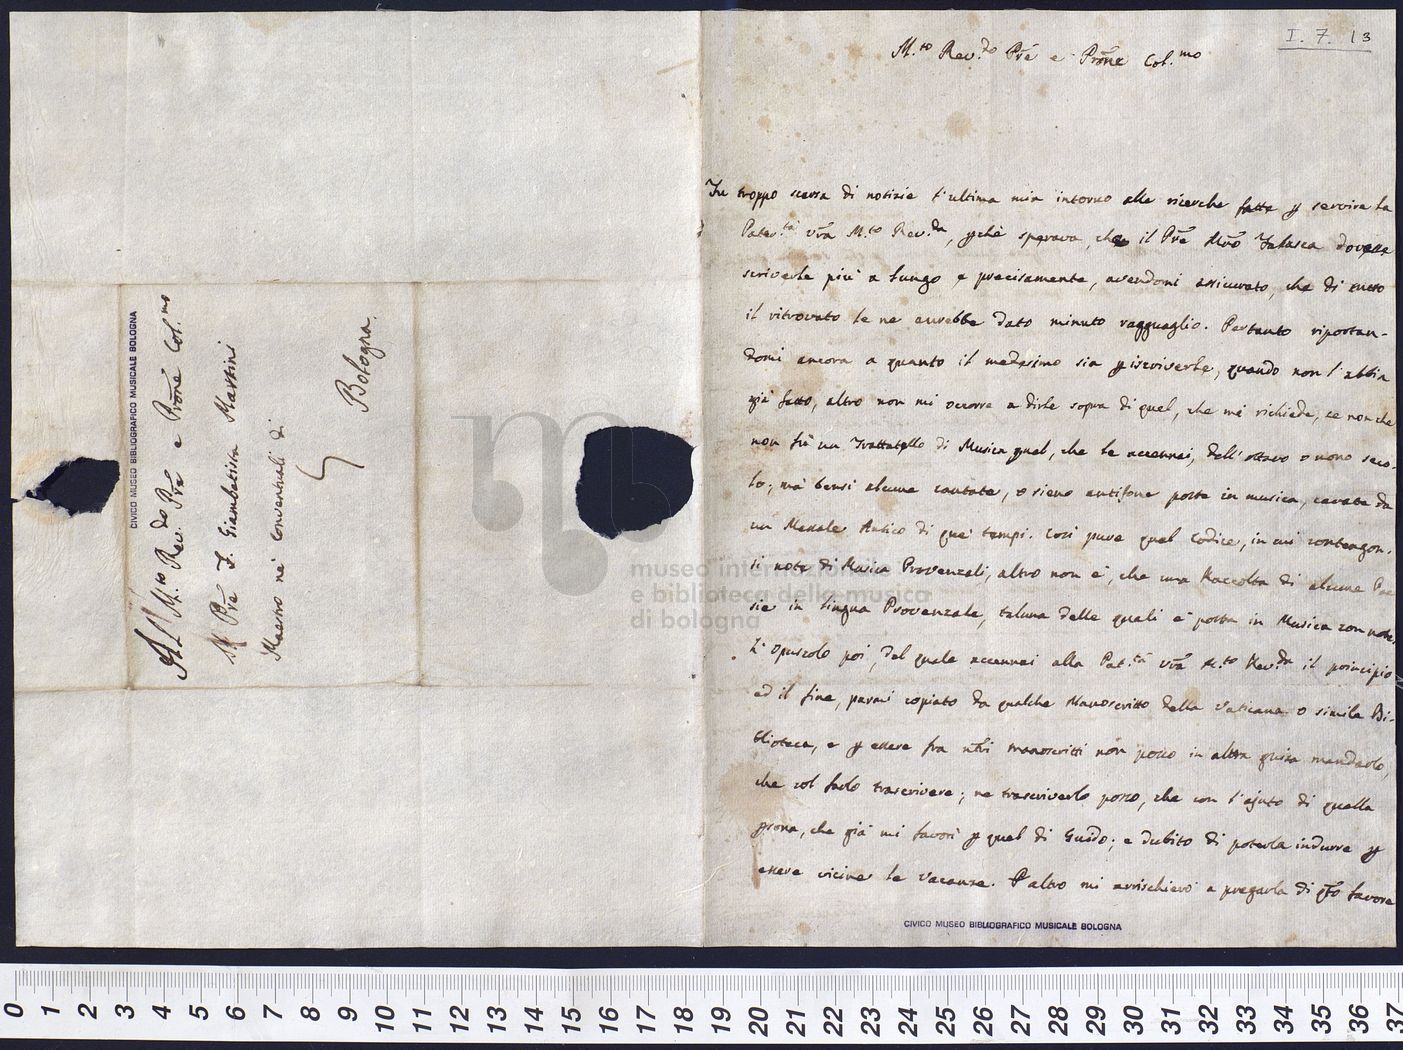 I. 7. 13
M.to Rev.do Prē e Prōne Col.mo
Fu troppo scarsa di notizie l'ultima mia intorno alle ricerche fatte p servire la
Pater.tà Vrā M.to Rev.da, pchè sperava, che il Prē Mrō Falasca dovesse
scriverle più a lungo e precisamente, avendomi assicurato, che di tutto
il ritrovato le ne avrebbe dato minuto ragguaglio. Pertanto riportan-
domi ancora a quanto il medesimo sia p iscriverle, quando non l'abbia
già fatto, altro non mi occorre a dirle sopra di quel, che mi richiede, se non che
non fù un Trattatello di Musica quel, che le accennai, dell'ottavo o nono seco-
lo; mà bensì alcune cantate, o sieno antifone poste in musica, cavate da
un Messale Antico di que' tempi. Così pure quel Codice, in cui contengon-
si note di Musica Provenzali, altro non è, che una Raccolta di alcune Poe
sie in lingua Provenzale, taluna delle quali è posta in Musica con note.
L'Opuscolo poi, del quale accennai alla Pat.tà Vrā M.to Rev.da il principio
ed il fine, parmi copiato da qualche Manoscritto della Vaticana o simile Bi-
blioteca, e p essere fra nrī manoscritti non posso in altra guisa mandarlo,
che col farlo trascrivere; ne trascriverlo posso, che con l'ajuto di quella
psona, che già mi favorì p quel di Guido; e dubito di poterla indurre p
essere vicine le vacanze. P altro mi arrischierò a pregarla di qsto favore
CIVICO MUSEO BIBLIOGRAFICO MUSICALE BOLOGNA
CIVICO MUSEO BIBLIOGRAFICO MUSICALE BOLOGNA
Al M.to Rev.do Prē e Prōne Col.mo
Prē F. Giambatista Martini
Maestro ne' Conventuali di
Bologna.
museo internazionale
e biblioteca della musica
di bologna
0 1 2 3 4 5 6 7 8 9 10 11 12 13 14 15 16 17 18 19 20 21 22 23 24 25 26 27 28 29 30 31 32 33 34 35 36 37